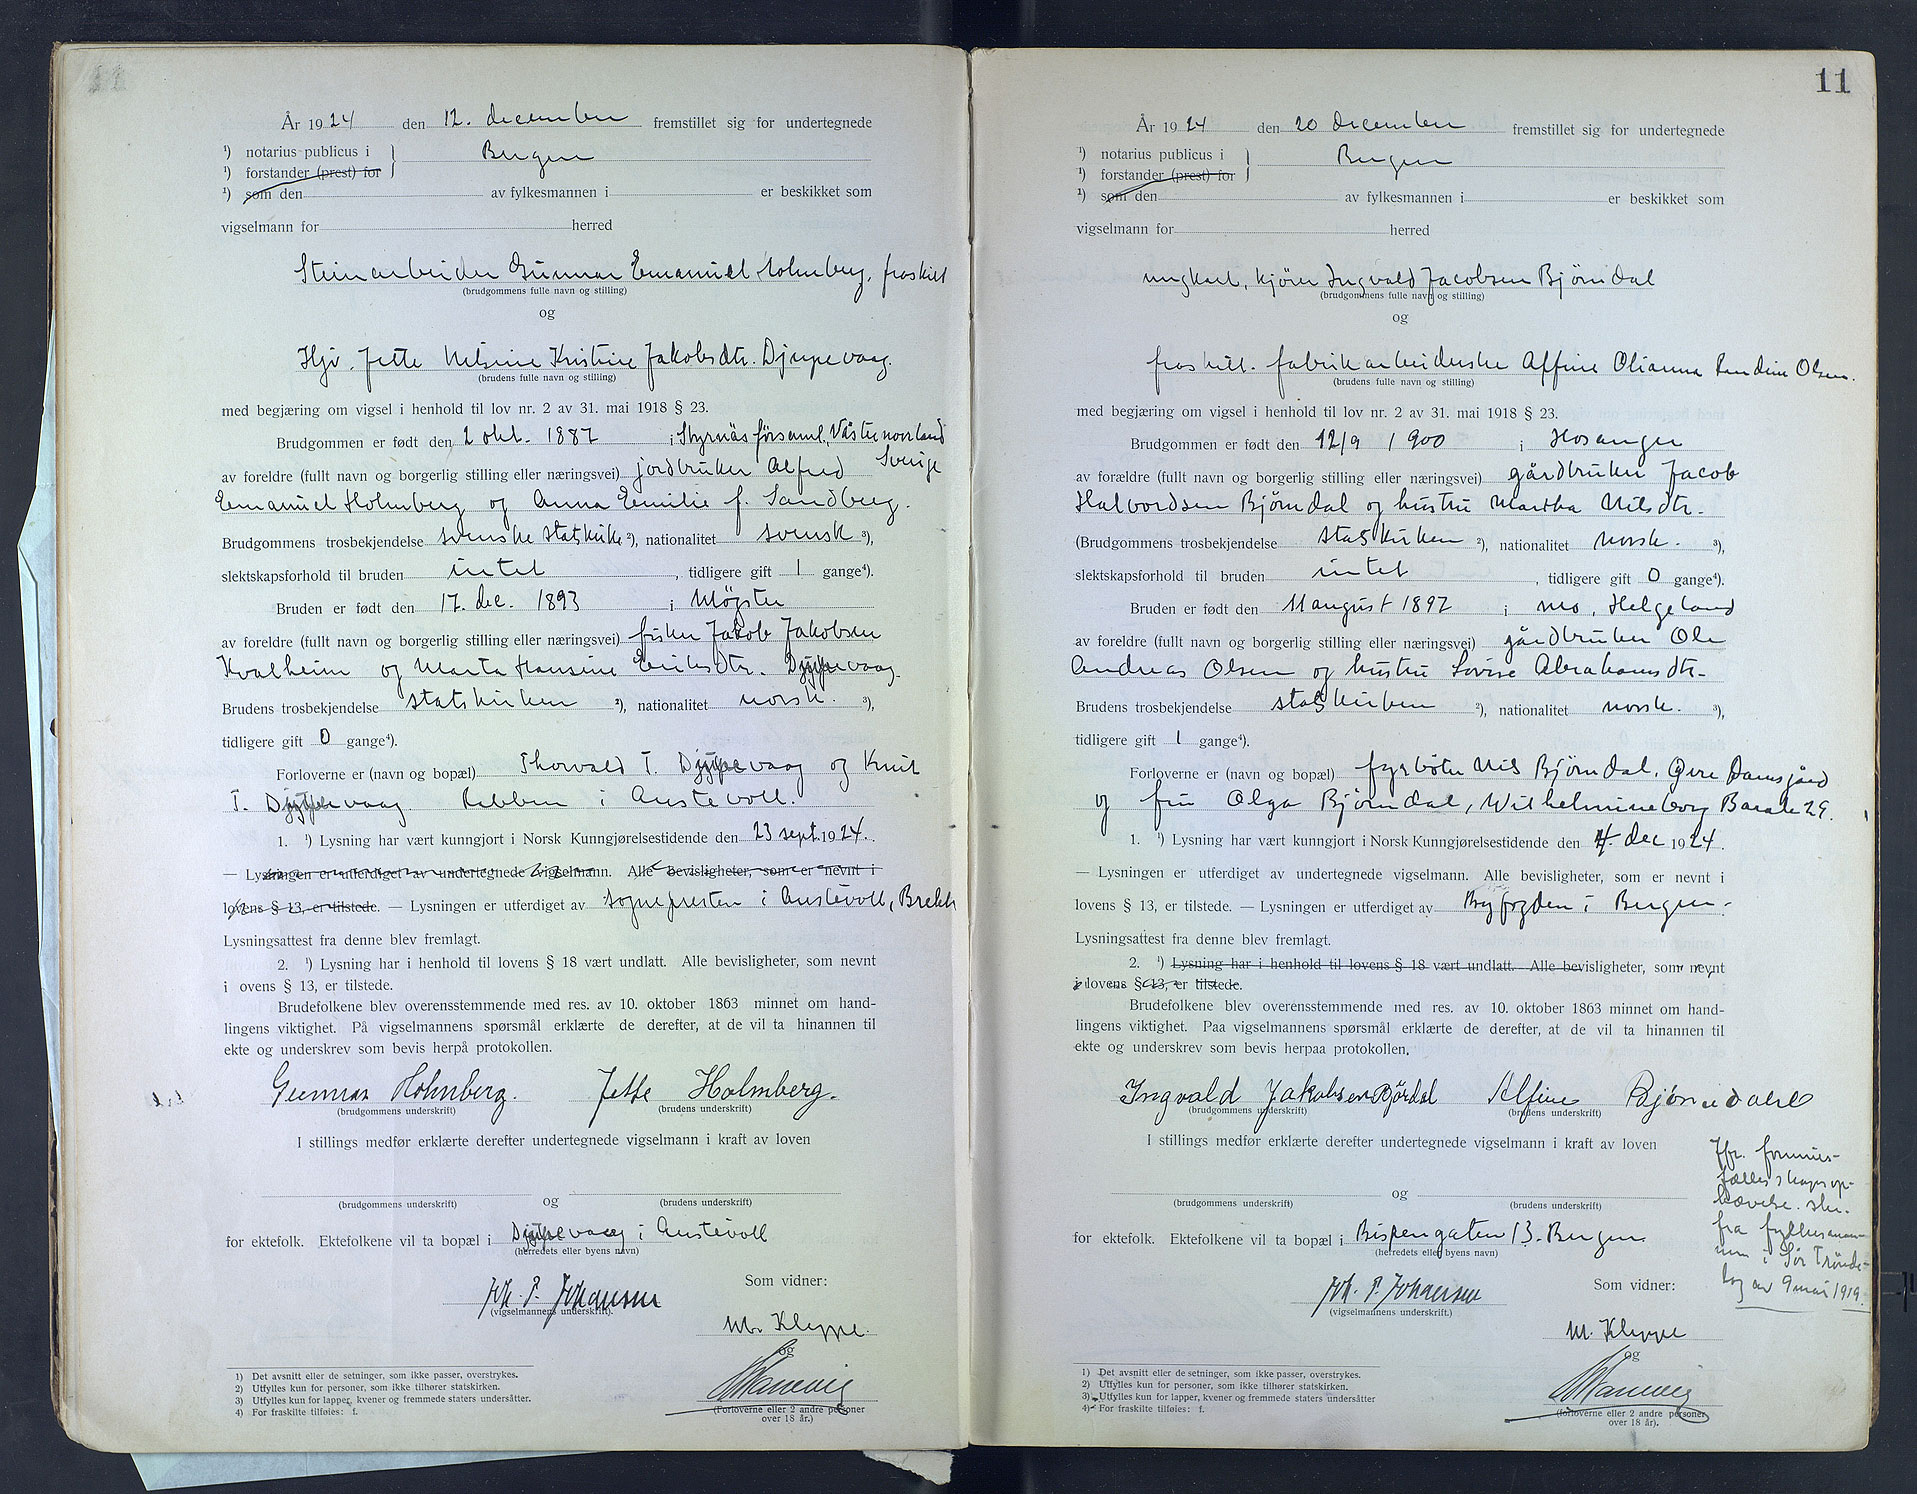 År 1924 den 12. december fremstillet sig for undertegnede
¹) notarius publicus i } Bergen
¹) forstander (prest) for
¹) som den av fylkesmannen i er beskikket som
vigselmann for herred
Steinarbeider Gunnar Emanuel Holmberg, fraskilt
(brudgommens fulle navn og stilling)
og
Hjv. Jette Nilsine Kristine Jakobsdtr. Djupevaag.
(brudens fulle navn og stilling)
med begjæring om vigsel i henhold til lov nr. 2 av 31. mai 1918 § 23.
Brudgommen er født den 2 okt. 1887 i Styrnäs församl. Västernorrland
Sverige
av foreldre (fullt navn og borgerlig stilling eller næringsvei) jordbruker Alfred
Emanuel Holmberg og Anna Emilie f. Sandberg.
Brudgommens trosbekjendelse svenske statskirke ²), nationalitet svensk ³),
slektskapsforhold til bruden intet, tidligere gift 1 gange⁴).
Bruden er født den 17. dec. 1893 i Møgster
av foreldre (fullt navn og borgerlig stilling eller næringsvei) fisker Jakob Jakobsen
Kvalheim og Marta Hansine Eriksdtr. Djupevaag.
Brudens trosbekjendelse statskirken ²), nationalitet norsk. ³),
tidligere gift 0 gange⁴).
Forloverne er (navn og bopæl) Thorvald T. Djupevaag og Knut
T. Djupevaag. Rabben i Austevoll.
1. ¹) Lysning har vært kunngjort i Norsk Kunngjørelsestidende den 23 sept. 1924.
— Lysningen er utferdiget av undertegnede vigselmann. Alle bevisligheter, som er nevnt i
lovens § 13, er tilstede. — Lysningen er utferdiget av sognepresten i Austevoll, Brekk
Lysningsattest fra denne blev fremlagt.
2. ¹) Lysning har i henhold til lovens § 18 vært undlatt. Alle bevisligheter, som nevnt
i ovens § 13, er tilstede.
Brudefolkene blev overensstemmende med res. av 10. oktober 1863 minnet om hand-
lingens viktighet. På vigselmannens spørsmål erklærte de derefter, at de vil ta hinannen til
ekte og underskrev som bevis herpå protokollen.
Gunnar Holmberg. Jette Holmberg.
(brudgommens underskrift) (brudens underskrift)
I stillings medfør erklærte derefter undertegnede vigselmann i kraft av loven
og
(brudgommens underskrift) (brudens underskrift)
for ektefolk. Ektefolkene vil ta bopæl i Djupevaag i Austevoll
(herredets eller byens navn)
Joh. P. Johansen
(vigselmannens underskrift).
Som vidner:
M. Kleppe.
og
(Forloverne eller 2 andre personer
over 18 år.)
1) Det avsnitt eller de setninger, som ikke passer, overstrykes.
2) Utfylles kun for personer, som ikke tilhører statskirken.
3) Utfylles kun for lapper, kvener og fremmede staters undersåtter.
4) For fraskilte tilføies: f.
11
År 1924 den 20 december fremstillet sig for undertegnede
¹) notarius publicus i } Bergen
¹) forstander (prest) for
¹) som den av fylkesmannen i er beskikket som
vigselmann for herred
ungkarl, kjører Ingvald Jacobsen Bjørndal
(brudgommens fulle navn og stilling)
og
fraskilt. fabrikarbeiderske Alfine Olianna Randine Olsen.
(brudens fulle navn og stilling)
med begjæring om vigsel i henhold til lov nr. 2 av 31. mai 1918 § 23.
Brudgommen er født den 12/9 1900 i Hosanger
av forældre (fullt navn og borgerlig stilling eller næringsvei) gårdbruker Jacob
Halvordsen Bjørndal og hustru Martha Nilsdtr.
(Brudgommens trosbekjendelse statskirken ²), nationalitet norsk. ³),
slektskapsforhold til bruden intet, tidligere gift 0 gange⁴).
Bruden er født den 11 august 1897 i Mo, Helgeland
av foreldre (fullt navn og borgerlig stilling eller næringsvei) gårdbruker Ole
Andreas Olsen og hustru Lovise Abrahamsdtr.
Brudens trosbekjendelse statskirken ²), nationalitet norsk. ³),
tidligere gift 1 gange⁴).
Forloverne er (navn og bopæl) fyrbøter Nils Bjørndal, Øvre Damsgård
og fru Olga Bjørndal, Wilhelmineborg Barak 29.
1. ¹) Lysning har vært kunngjort i Norsk Kunngjørelsestidende den 4. dec 1924.
— Lysningen er utferdiget av undertegnede vigselmann. Alle bevisligheter, som er nevnt i
lovens § 13, er tilstede. — Lysningen er utferdiget av Byfogden i Bergen.
Lysningsattest fra denne blev fremlagt.
2. ¹) Lysning har i henhold til lovens § 18 vært undlatt. Alle bevisligheter, som nevnt
i lovens § 13, er tilstede.
Brudefolkene blev overensstemmende med res. av 10. oktober 1863 minnet om hand-
lingens viktighet. Paa vigselmannens spørsmål erklærte de derefter, at de vil ta hinannen til
ekte og underskrev som bevis herpaa protokollen.
Ingvald Jakobsen Bjørdal Alfine Bjørndahl
(brudgommens underskrift) (brudens underskrift)
I stillings medfør erklærte derefter undertegnede vigselmann i kraft av loven
og
(brudgommens underskrift) (brudens underskrift)
for ektefolk. Ektefolkene vil ta bopæl i Bispengaten 13. Bergen
(herredets eller byens navn)
Jfr. formues-
fællesskapsop-
hævelse. skr.
fra fylkesman-
nen i Sør Trønde-
lag av 9 mai 1919.
Joh. P. Johansen
(vigselmannens underskrift.)
Som vidner:
M. Kleppe
og
(forloverne eller 2 andre personer
over 18 år).
1) Det avsnitt eller de setninger, som ikke passer, overstrykes.
2) Utfylles kun for personer, som ikke tilhører statskirken.
3) Utfylles kun for lapper, kvener og fremmede staters undersåtter
4) For fraskilte tilføies: f.